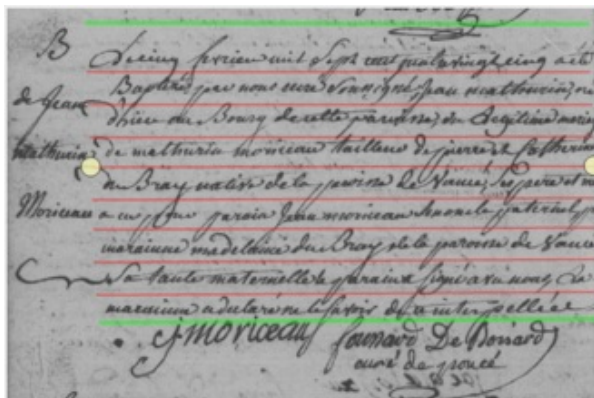 B
Le cinq fevrier mil sept cent quatrevingt cinq a été
Baptisé par nous curé soussigné Jean mathurin né
d'hier au Bourg de cette paroisse, du legitime mariage
de mathurin moriceau tailleur de pierre et Catherine
du Bray native de la paroisse de Vancé, ses pere et
a eu pour parain Jean moriceau son oncle paternel
maraine madelaine du Bray de la paroisse de Vancé
Sa tante maternelle le parain a signé avec nous, La
maraine a declaré ne le savoir de ce interpellée
de Jean
Mathurin
Moriceau
J moriceau
De Bonard
curé de poncé